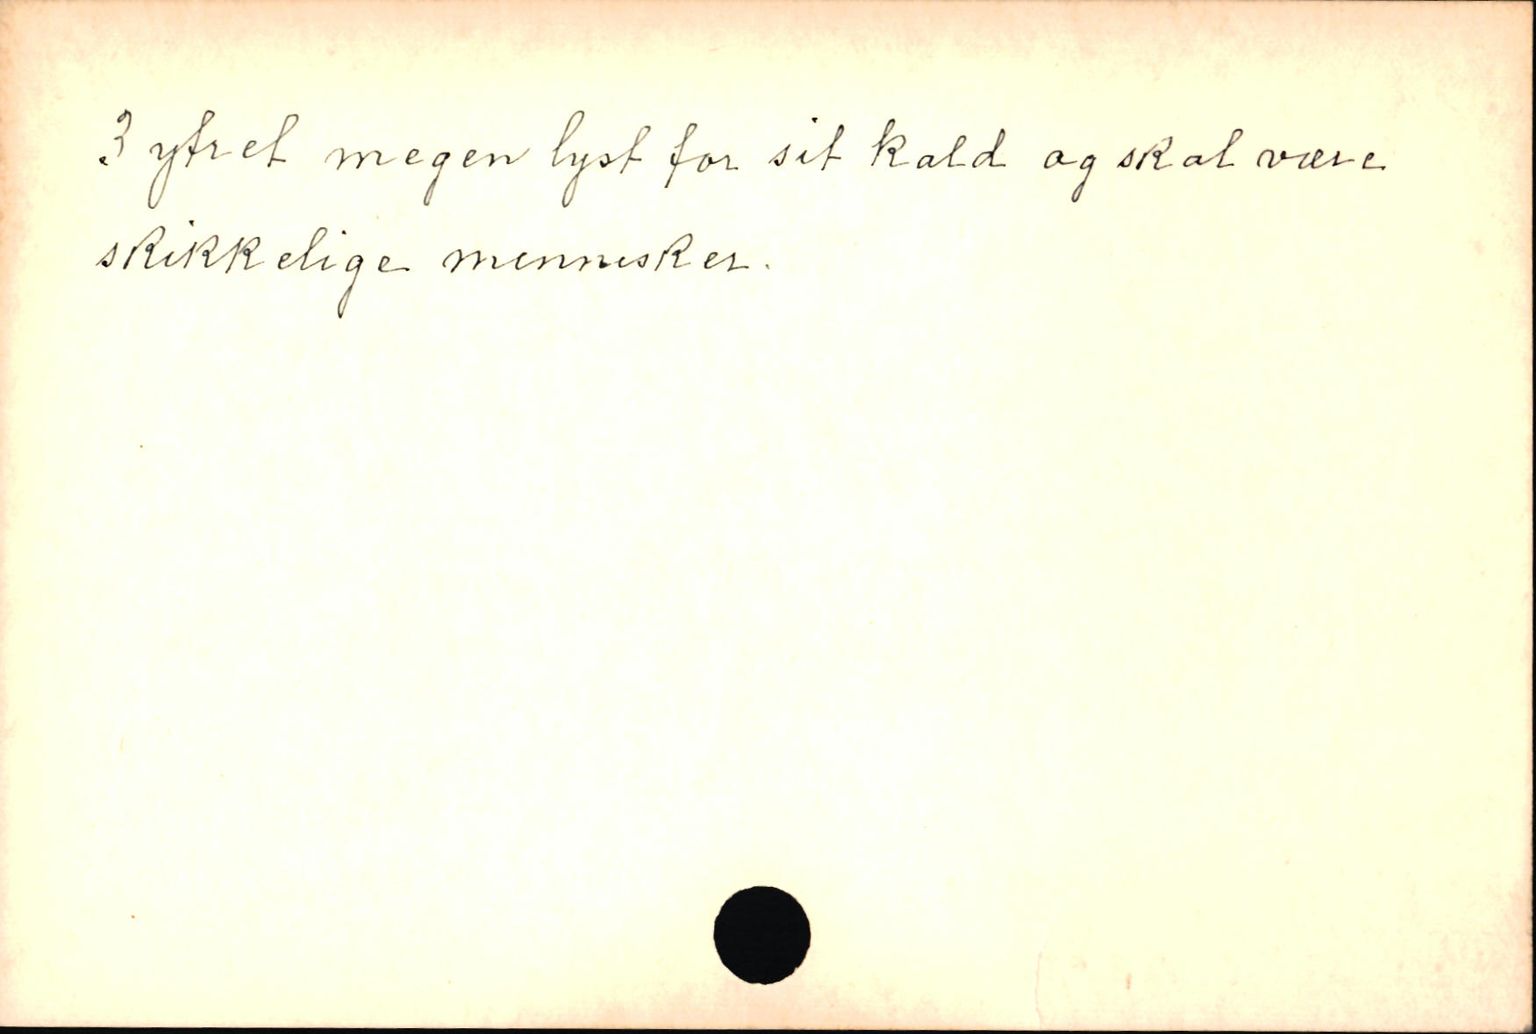 3 ytret megen lyst for sit kald og skal være
skikkelige mennesker.